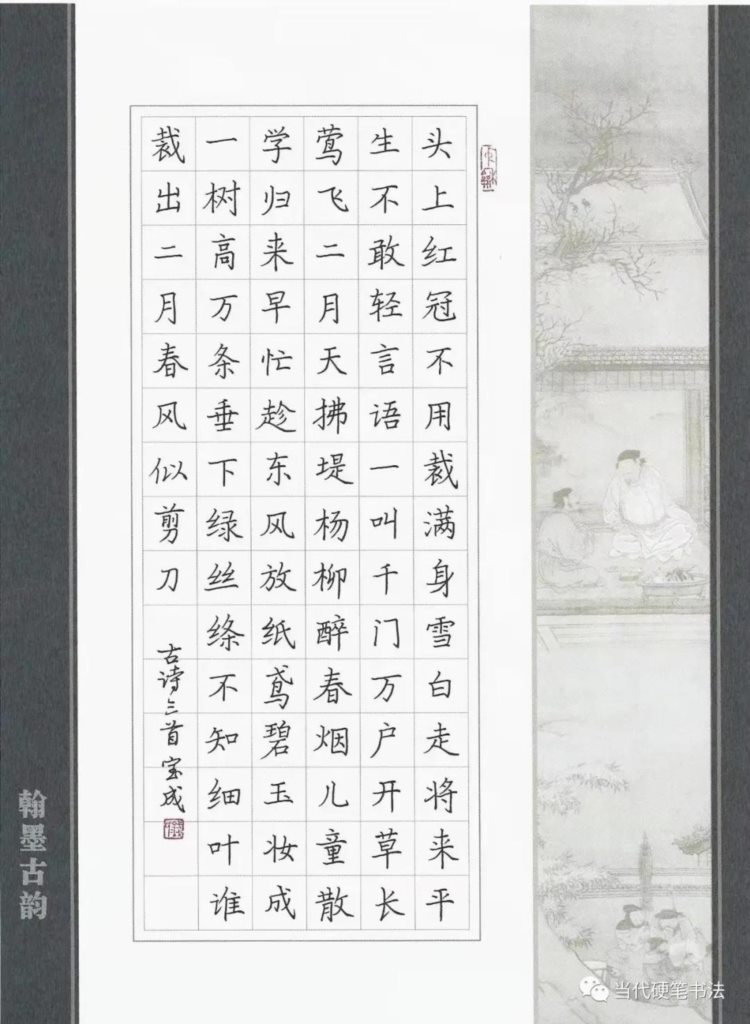 头上红冠不用裁满身雪白走将来平
生不敢轻言语一叫千门万户开草长
莺飞二月天拂堤杨柳醉春烟儿童散
学归来早忙趁东风放纸鸢碧玉妆成
一树高万条垂下绿丝绦不知细叶谁
裁出二月春风似剪刀
古诗三首宝成
翰墨古韵
当代硬笔书法